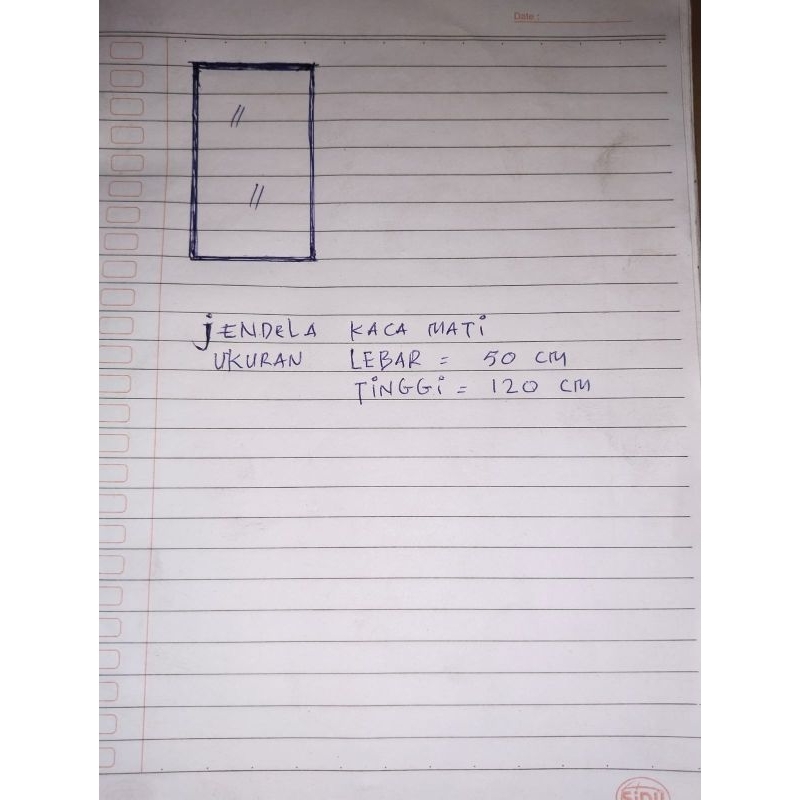 Date :
jENDeLA KACA MATi
UKURAN LEBAR = 50 CM
TiNGGi = 120 CM
SiDU